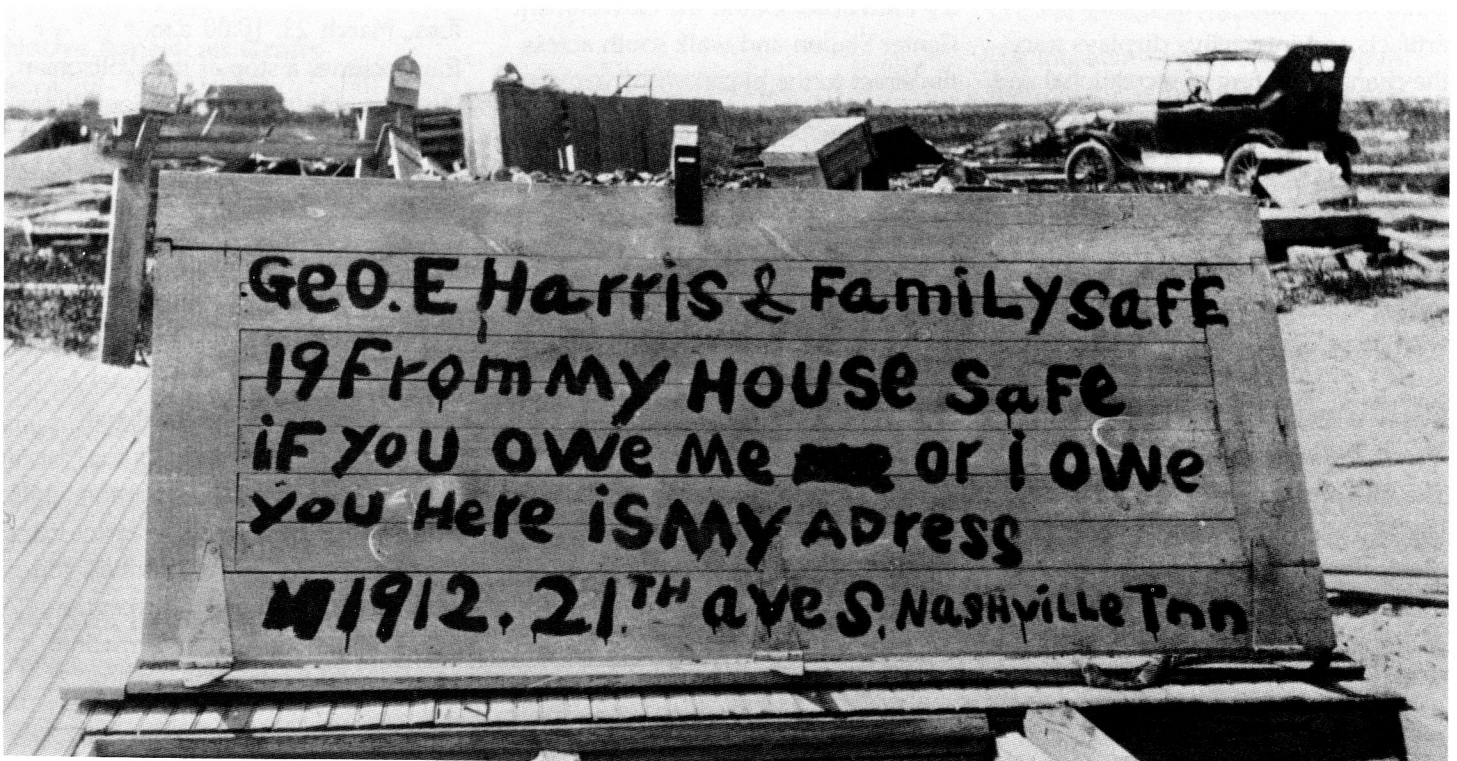 GeO. E Harris & FamiLy SaFE
19 From My HOUSe SaFe
iF you OWe Me or i OWe
you Here iS My ADress
1912. 21.TH ave S. NASHviLLe Tnn